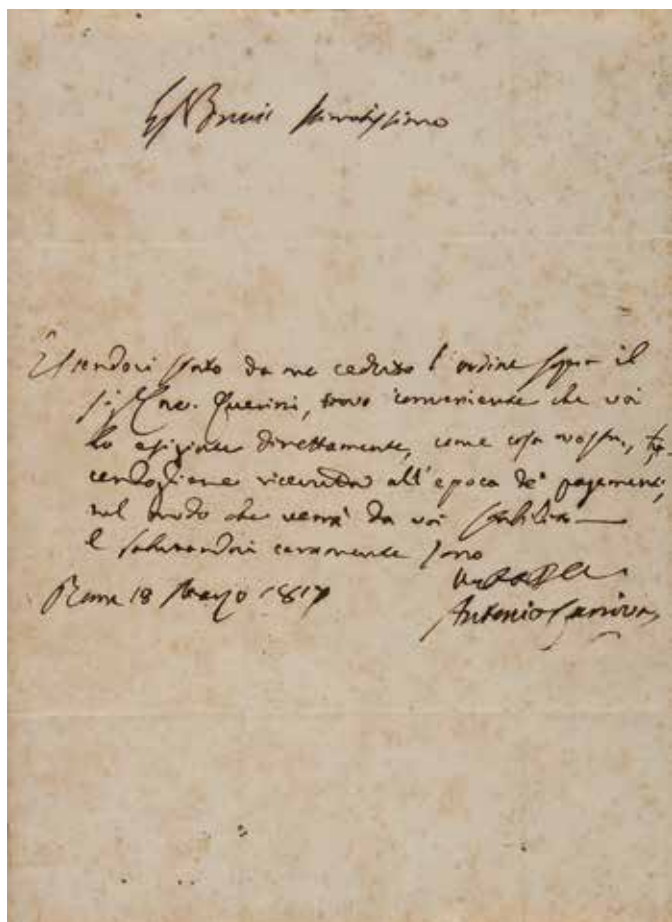 stimatissimo
Essendovi stato da me ceduto l'ordine sopra il
Sig. Querini, trovo conveniente che voi
lo esigiate direttamente, come cosa vostra,
all'epoca de' pagamenti,
nel modo che verrà da voi stabilito
E salutandovi caramente sono
Roma 18 Marzo 1817
Antonio Canova